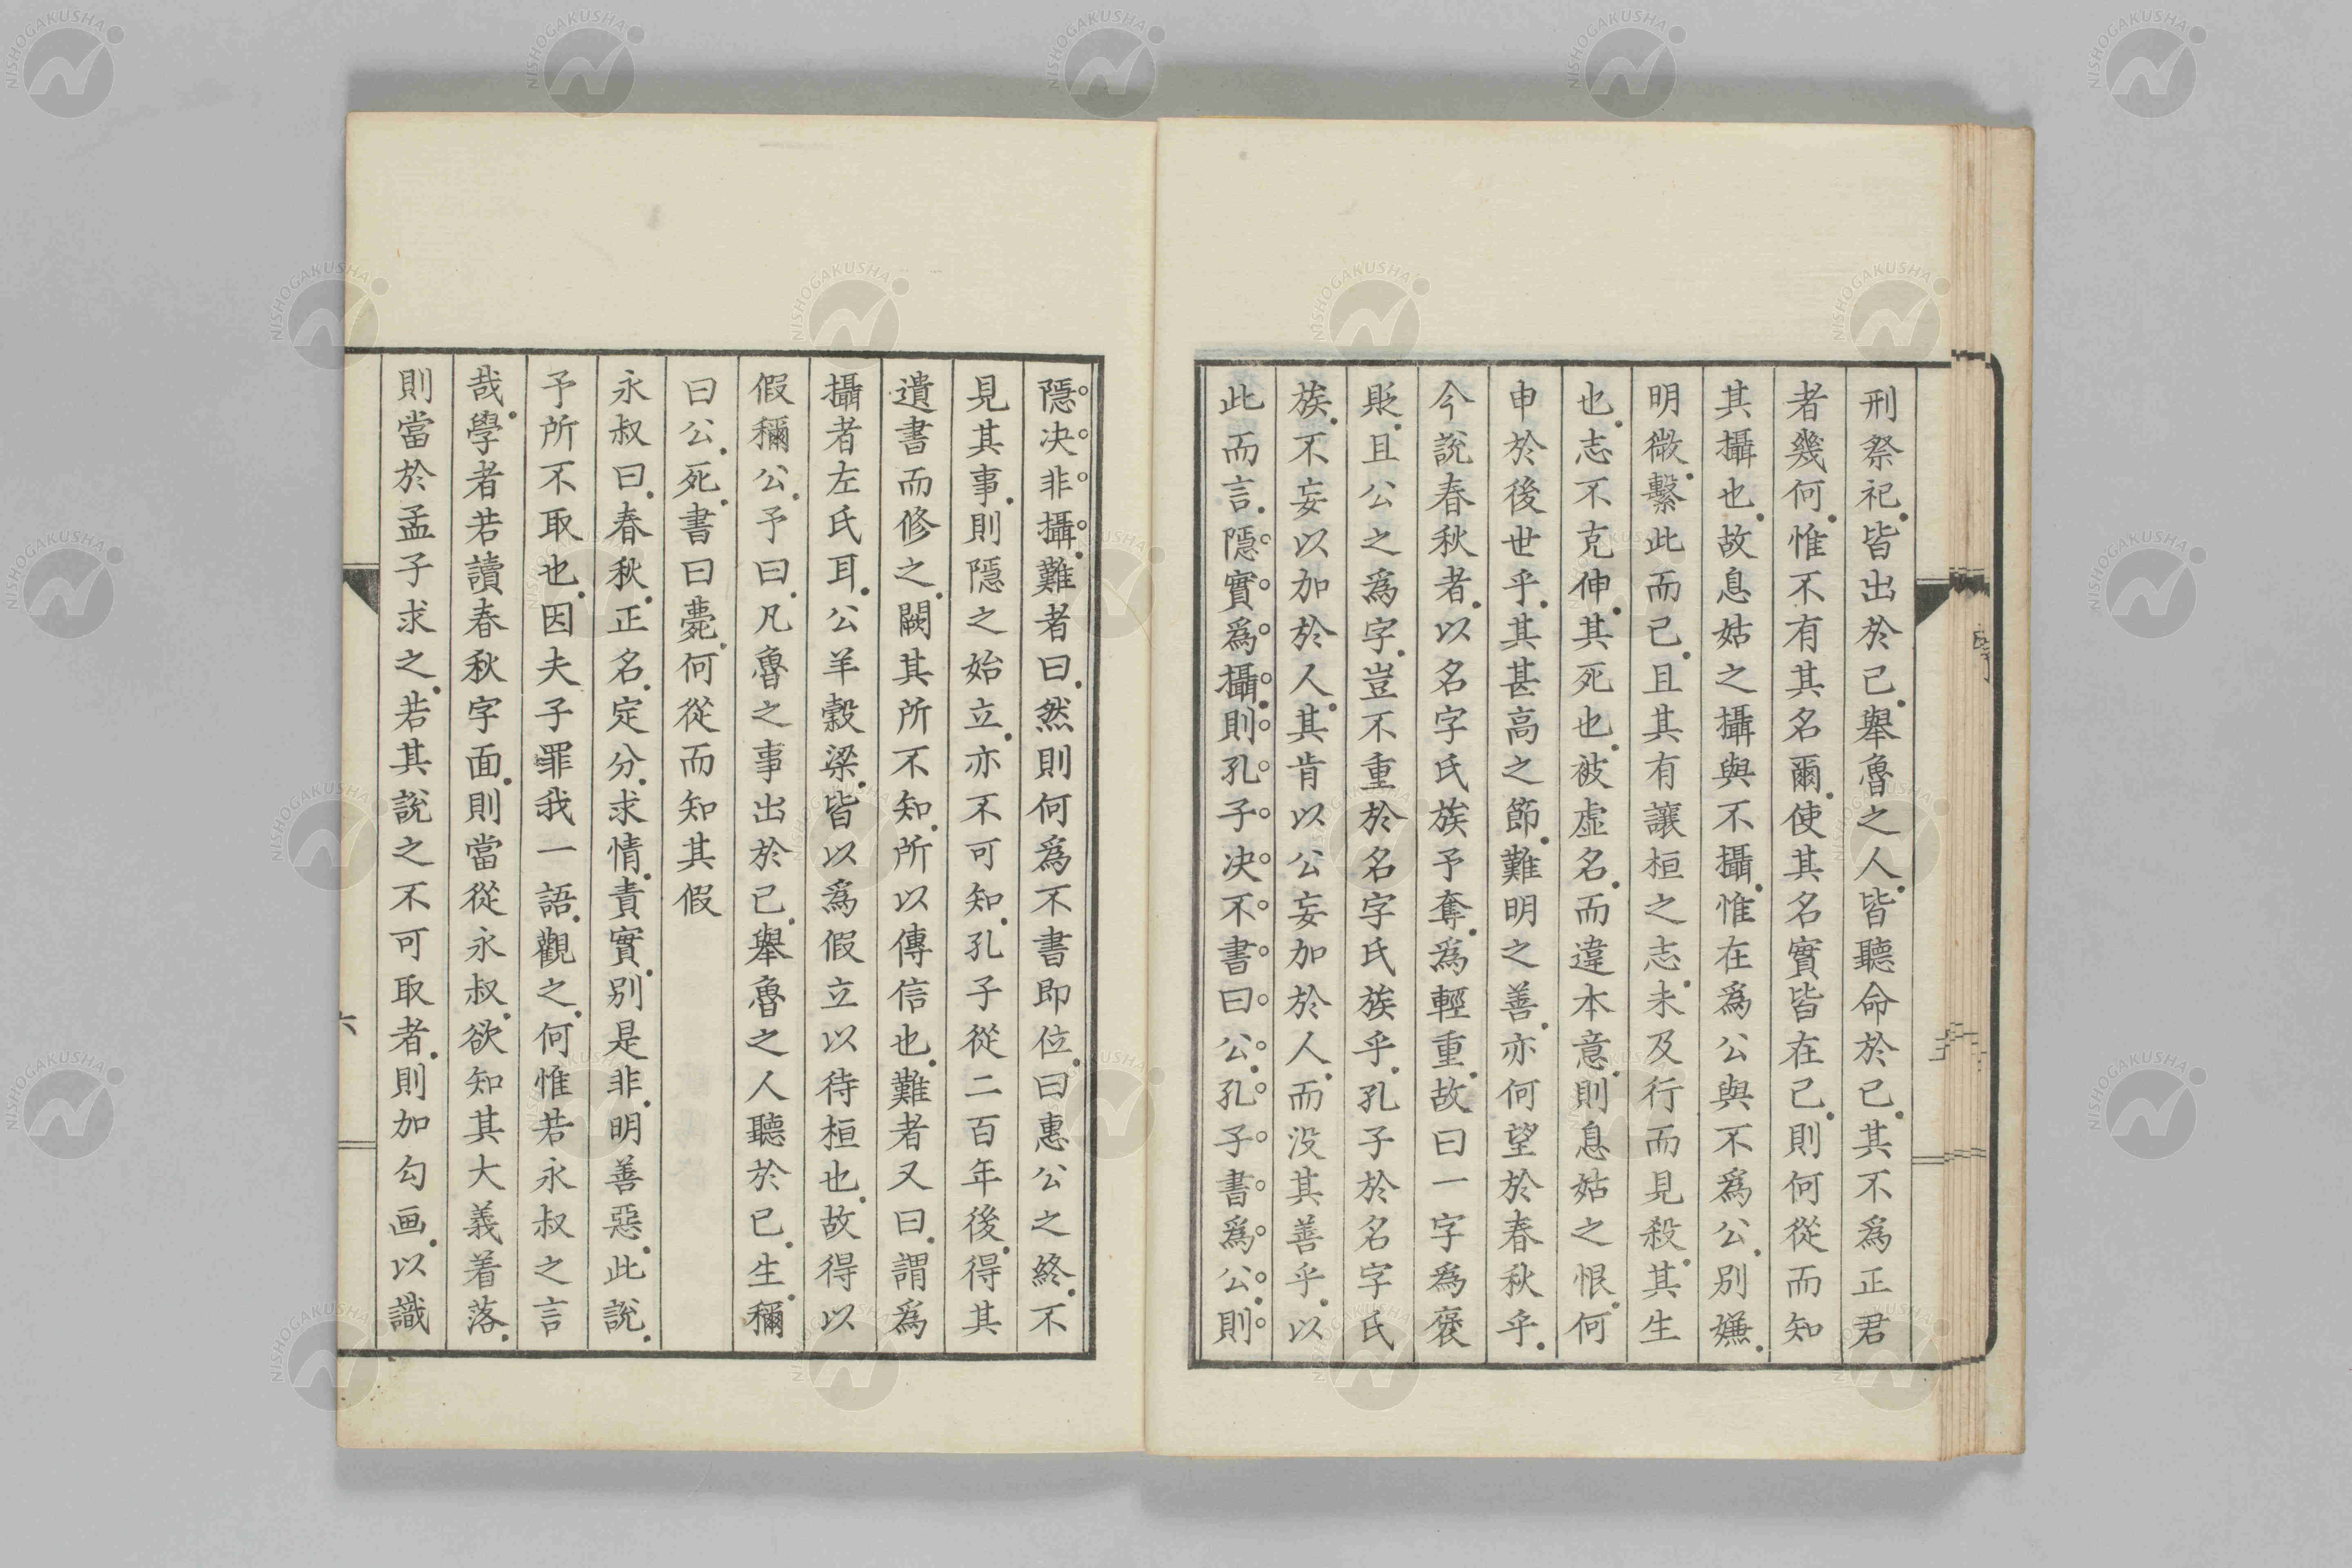 刑祭祀皆出於己舉魯之人皆聽命於己其不爲正君
者幾何惟不有其名爾使其名實皆在己則何從而知
其攝也故息姑之攝與不攝惟在爲公與不爲公別嫌
明微繫此而已且其有讓桓之志未及行而見殺其生
也志不克伸其死也被虛名而違本意則息姑之恨何
申於後世乎其甚高之節難明之善亦何望於春秋乎
今說春秋者以名字氏族予奪爲輕重故曰一字爲褒
貶且公之爲字豈不重於名字氏族乎孔子於名字氏
族不妄以加於人其肯以公妄加於人而没其善乎以
此而言隱實爲攝則孔子决不書曰公孔子書爲公則
隱决非攝難者曰然則何爲不書即位曰惠公之終不
見其事則隱之始立亦不可知孔子從二百年後得其
遺書而修之闕其所不知所以傳信也難者又曰謂爲
攝者左氏耳公羊穀梁皆以爲假立以待桓也故得以
假稱公予曰凡魯之事出於己舉魯之人聽於己生稱
曰公死書曰薨何從而知其假
永叔曰春秋正名定分求情責實別是非明善惡此說
予所不取也因夫子罪我一語觀之何惟若永叔之言
哉學者若讀春秋字面則當從永叔欲知其大義着落
則當於孟子求之若其說之不可取者則加勾画以識
六
NISHOGAKUSHA